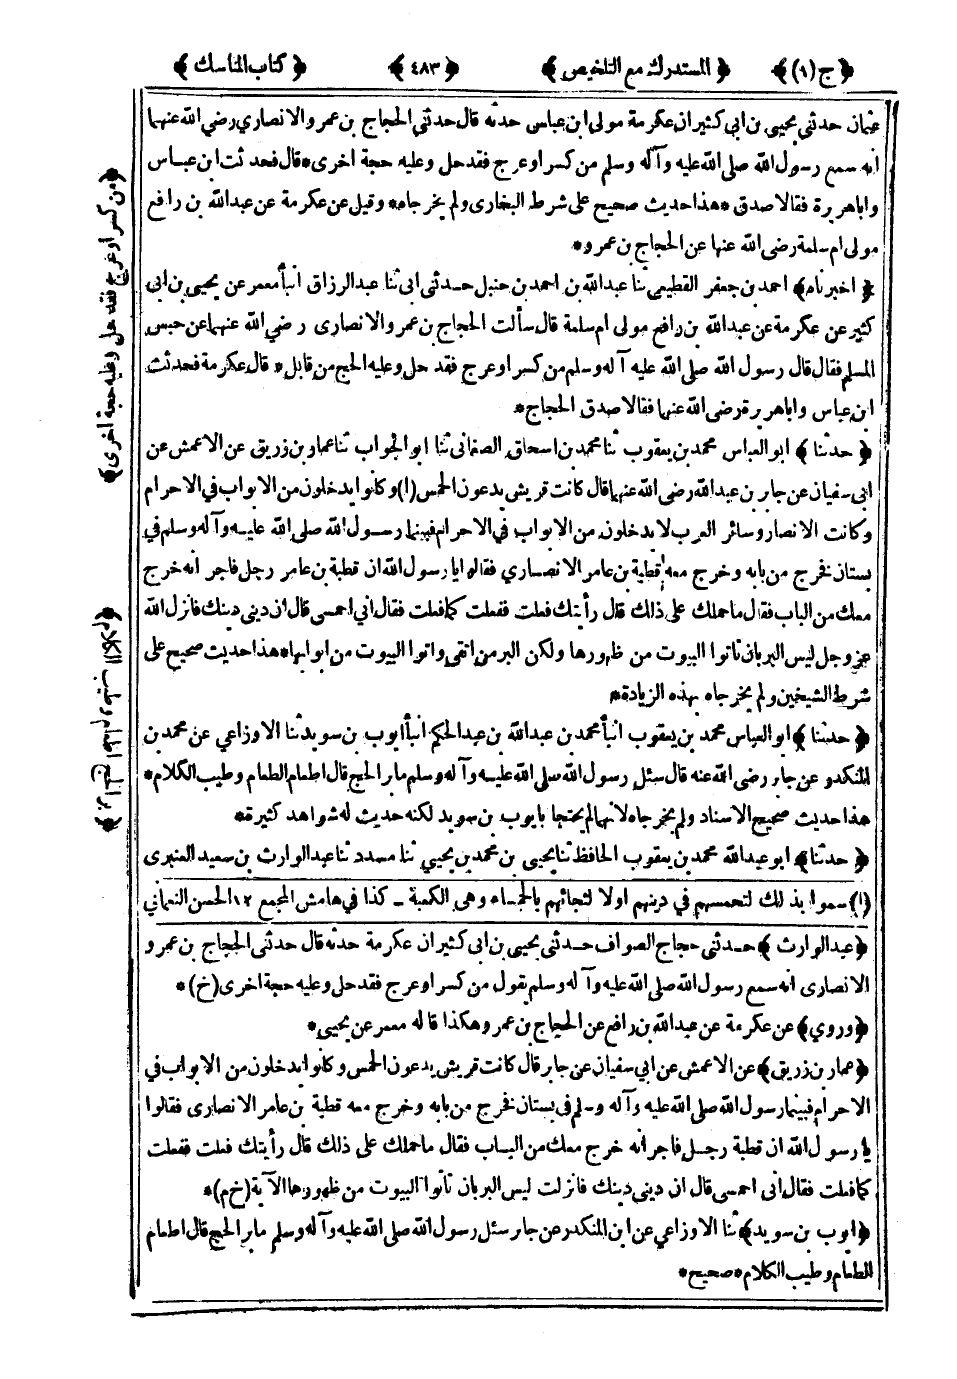 ﴿ ج (١) ﴾ ﴿ المستدرك مع التلخيص ﴾ ﴿ ٤٨٣ ﴾ ﴿ كتاب المناسك ﴾
عثمان حدثني يحيى بن ابي كثير ان عكرمة مولى ابن عباس حدثه قال حدثني الحجاج بن عمرو الانصاري رضي الله عنهما
انه سمع رسول الله صلى الله عليه وآله وسلم من كسر او عرج فقد حل وعليه حجة اخرى * قال فحدثت ابن عباس
واباهريرة فقالا صدق * هذا حديث صحيح على شرط البخارى ولم يخرجاه * وقيل عن عكرمة عن عبدالله بن رافع
مولى ام سلمة رضى الله عنها عن الحجاج بن عمرو *
﴿ اخبرناه ﴾ احمد بن جعفر القطيعي ثنا عبدالله بن احمد بن حنبل حدثني ابى ثنا عبدالرزاق انبأ معمر عن يحيى بن ابى
كثير عن عكرمة عن عبدالله بن رافع مولى ام سلمة قال سألت الحجاج بن عمرو الانصارى رضي الله عنهما عن حبس
المسلم فقال قال رسول الله صلى الله عليه آله وسلم من كسر او عرج فقد حل وعليه الحج من قابل * قال عكرمة فحدثت
ابن عباس واباهريرة رضى الله عنهما فقالا صدق الحجاج *
﴿ حدثنا ﴾ ابو العباس محمد بن يعقوب ثنا محمد بن اسحاق الصغانى ثنا ابو الجواب ثنا عمار بن زريق عن الاعمش عن
ابى سفيان عن جابر بن عبدالله رضى الله عنهما قال كانت قريش يدعون الحمس (١) وكانوا يدخلون من الابواب في الاحرام
وكانت الانصار وسائر العرب لا يدخلون من الابواب في الاحرام فبينما رسول الله صلى الله عليه وآله وسلم في
بستان فخرج من بابه وخرج معه قطبة بن عامر الانصاري فقالوا يا رسول الله ان قطبة بن عامر رجل فاجر انه خرج
معك من الباب فقال ما حملك على ذلك قال رأيتك فعلت ففعلت كما فعلت فقال اني احمسى قال ان ديني دينك فانزل الله
عز وجل ليس البر بان تاتوا البيوت من ظهورها ولكن البر من اتقى واتوا البيوت من ابوابها * هذا حديث صحيح على
شرط الشيخين ولم يخرجاه بهذه الزيادة *
﴿ حدثنا ﴾ ابو العباس محمد بن يعقوب انبأ محمد بن عبدالله بن عبدالحكم انبأ ايوب بن سويد ثنا الاوزاعي عن محمد بن
المنكدر عن جابر رضي الله عنه قال سئل رسول الله صلى الله عليه وآله وسلم ما بر الحج قال اطعام الطعام وطيب الكلام *
هذا حديث صحيح الاسناد ولم يخرجاه لانهما لم يحتجا بايوب بن سويد لكنه حديث له شواهد كثيرة *
﴿ حدثنا ﴾ ابو عبدالله محمد بن يعقوب الحافظ ثنا يحيى بن محمد بن يحيى ثنا مسدد ثنا عبدالوارث بن سعيد العنبرى
(١) سموا بذلك لتحمسهم في دينهم اولا لتجائهم بالحمساء وهى الكعبة ــ كذا في هامش المجمع ١٢ الحسن النعماني
﴿ عبدالوارث ﴾ حدثني حجاج الصواف حدثني يحيى بن ابى كثير ان عكرمة حدثه قال حدثني الحجاج بن عمرو
الانصارى انه سمع رسول الله صلى الله عليه وآله وسلم يقول من كسر او عرج فقد حل وعليه حجة اخرى (خ) *
﴿ وروي ﴾ عن عكرمة عن عبدالله بن رافع عن الحجاج بن عمر وهكذا قاله معمر عن يحيى *
﴿ عمار بن زريق ﴾ عن الاعمش عن ابي سفيان عن جابر قال كانت قريش يدعون الحمس وكانوا يدخلون من الابواب في
الاحرام فبينما رسول الله صلى الله عليه وآله وسلم في بستان فخرج من بابه وخرج معه قطبة بن عامر الانصارى فقالوا
يا رسول الله ان قطبة رجل فاجر انه خرج معك من الباب فقال ما حملك على ذلك قال رأيتك فعلت ففعلت
كما فعلت فقال انى احمسى قال ان ديني دينك فانزلت ليس البر بان تأتوا البيوت من ظهورها الآية (خ م) *
﴿ ايوب بن سويد ﴾ ثنا الاوزاعي عن ابن المنكدر عن جابر سئل رسول الله صلى الله عليه وآله وسلم ما بر الحج قال اطعام
الطعام وطيب الكلام * صحيح *
﴿ من كسر او عرج فقد حل وعليه حجة اخرى ﴾
﴿ بر الحج اطعام الطعام وطيب الكلام ﴾